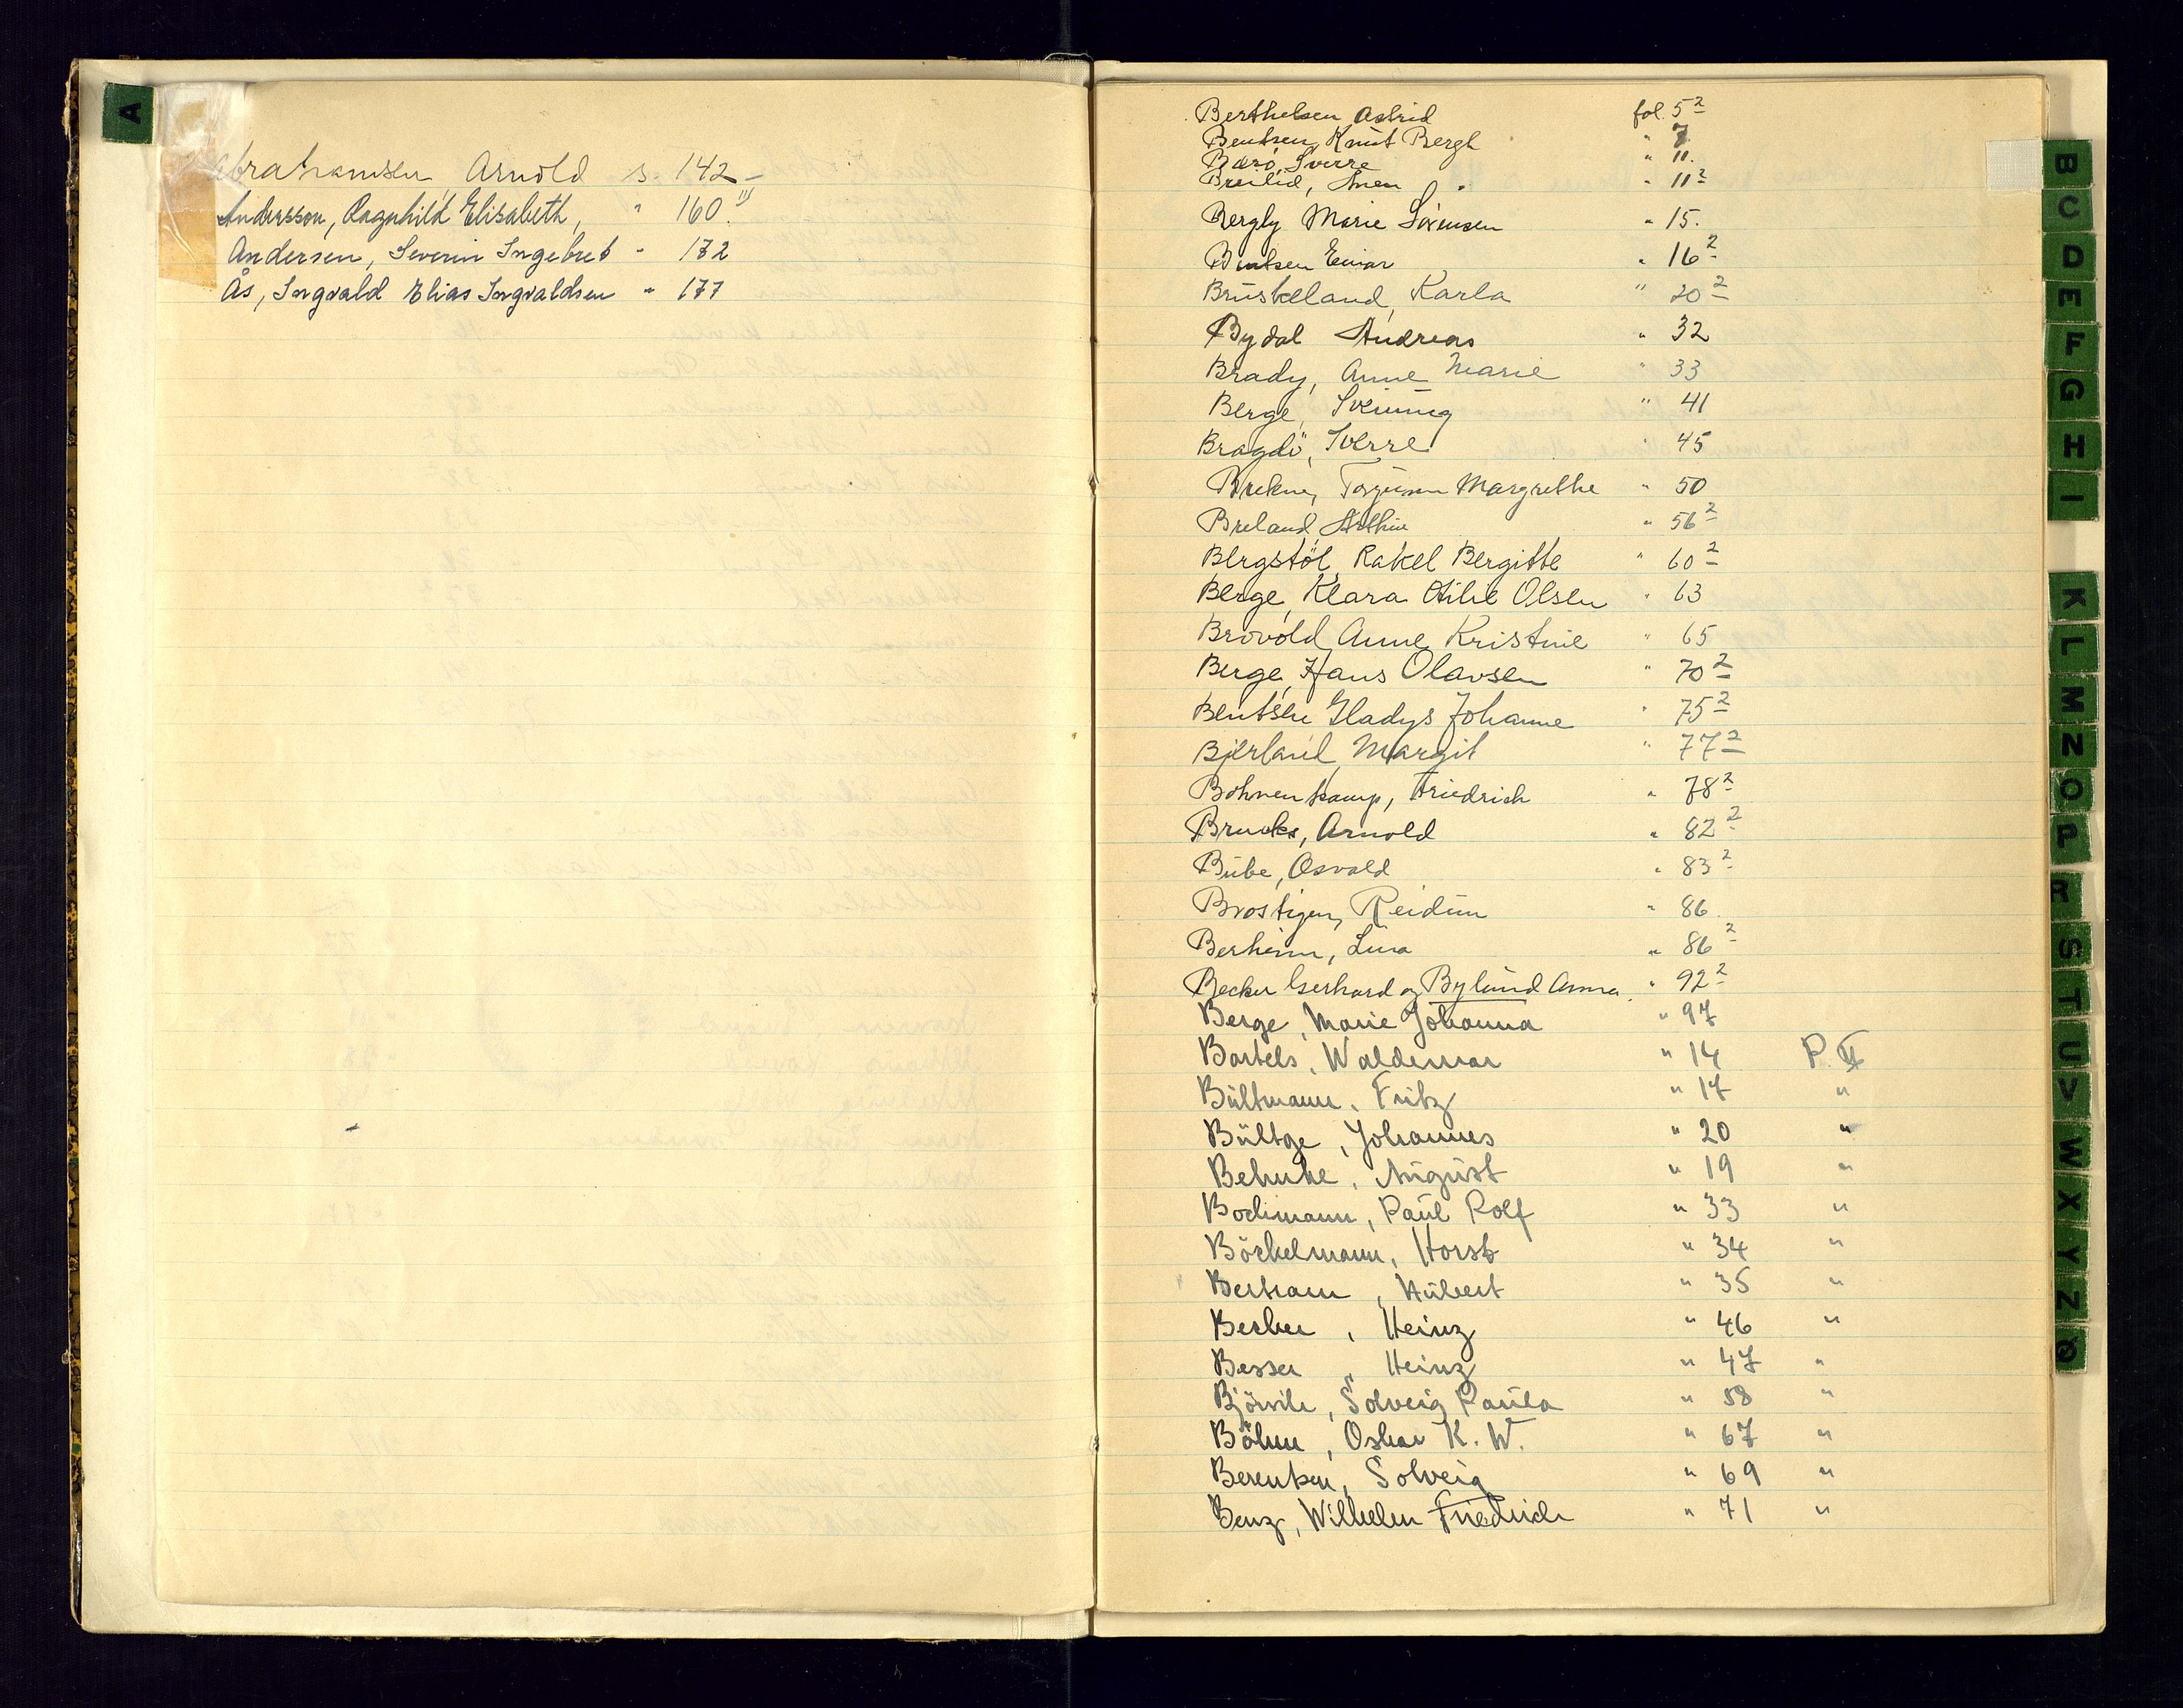 A
Abrahamsen, Arnold s. 142 -
Andersson, Ragnhild Elisabeth, " 160 III
Andersen, Severin Ingebret " 172
Ås, Ingvald Elias Ingvaldsen " 177
Berthelsen Astrid fol. 5 2
Bentsen, Knut Bergh " 7
Barö, Sverre " 11.
Breilid, " 11 2
Bergly Marie Sörensen " 15.
Berntsen Einar " 16 2
Brüskeland, Karla " 20 2
Bydal Andreas " 32
Brady, Anne Marie " 33
Berge, Sveinung " 41
Bragdö, Sverre " 45
Brekne, Torjunn Margrethe " 50
Breland, " 56 2
Bergstöl, Rakel Bergitte " 60 2
Berge, Klara Otilie Olsen " 63
Brovold Anne Kristine " 65
Berge, Hans Olavsen " 70 2
Bentsen Gladys Johanne " 75 2
Bjerland, Margit " 77 2
Bohnenkamp, Friedrich " 78 2
Brucks, Arnold " 82 2
Bübe, Osvald " 83 2
Brostigen, Reidun " 86
Berheim, Lina " 86 2
Becker Gerhard og Bylund Anna. " 92 2
Berge, Marie Johanna " 97
Bartels, Waldemar " 14 P. II
Bültmann, Fritz " 17 "
Bültge, Johannes " 20 "
Behnke, August " 19 "
Bochmann, Paul Rolf " 33 "
Böckelmann, Horst " 34 "
Bertram, Hubert " 35 "
Becker, Heinz " 46 "
Besser, Heinz " 47 "
Björvik, Solveig Paula " 58 "
Böhm, Oskar K. W. " 67 "
Berentsen, Solveig " 69 "
Benz, Wilhelm Friedrich " 71 "
B
C
D
E
F
G
H
I
K
L
M
N
O
P
R
S
T
U
V
W
X
Y
Z
Q